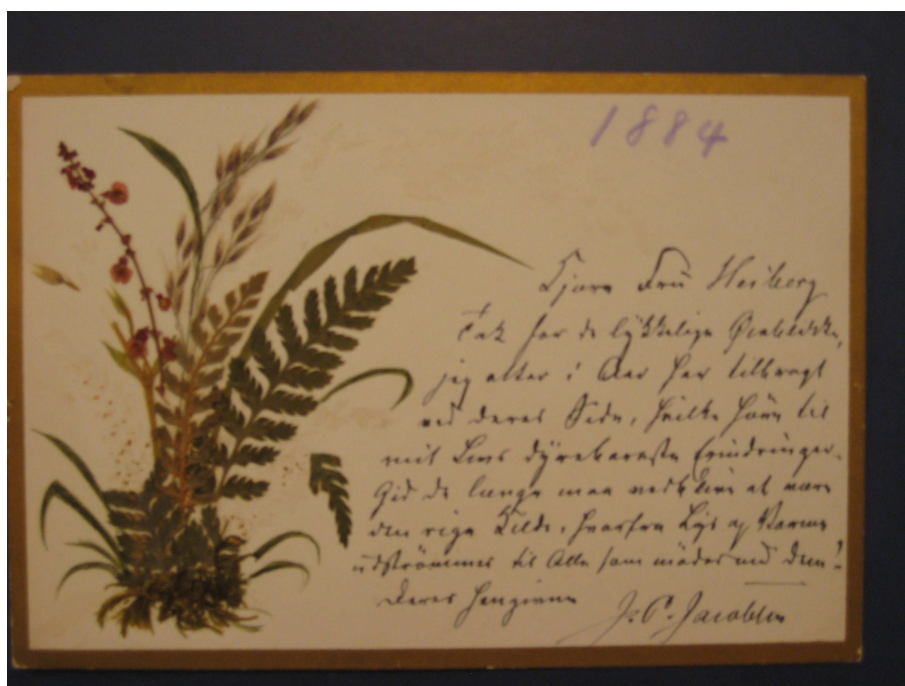 1884
Kjære Frü Heiberg
Tak for de lÿkkelige Øieblikke,
jeg atter i Aar har tilbragt
ved Deres Side, hvilke høre til
mit Livs dÿrebareste Erindringer.
Gid De længe maa vedblive at være
den rige Kilde, hvorfra Lÿs og Varme
udströmmer til Alle som möder ved den!
Deres hengivne
J. C. Jacobsen